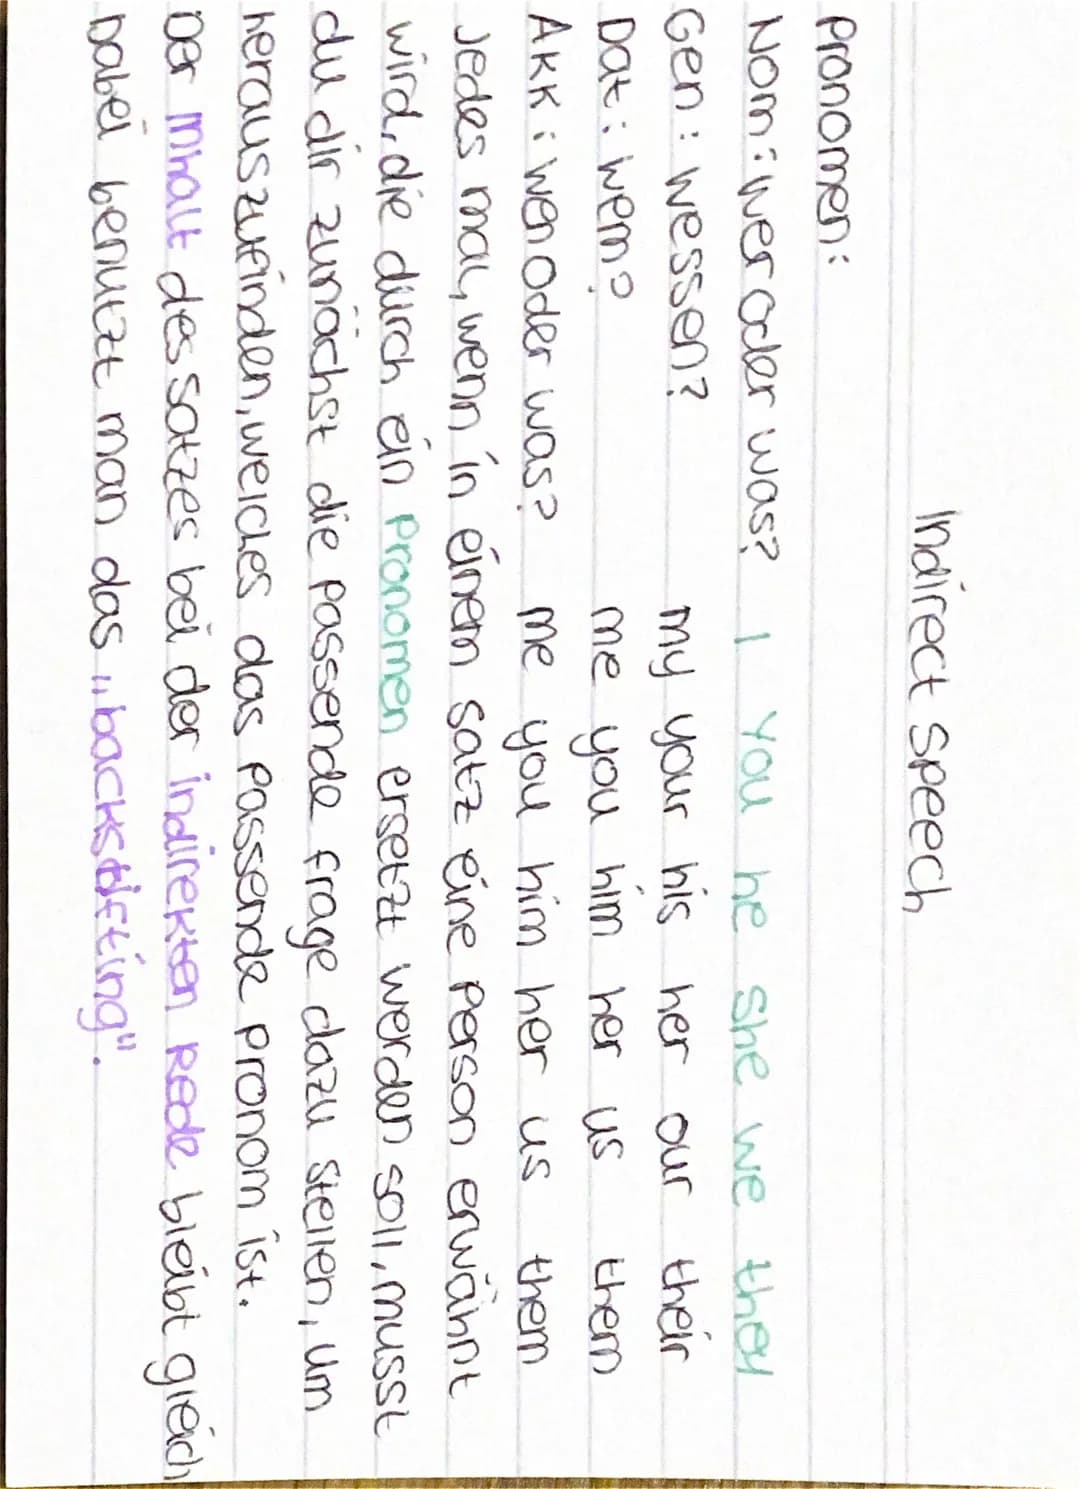 Indirect Speech
Pronomen:
Nom: Wer oder was? I You he She we they
Gen: wessen? my your his her our their
Dat: wem? me you him her us them
AKK: wen oder was? me you him her us them
Jedes mal, wenn in einem Satz eine Person erwähnt
wird, die durch ein Pronomen ersetzt werden soll, musst
du dir zunächst die passende frage dazu stellen, um
herauszufinden, welches das passende pronom ist.
Der Inhalt des Satzes bei der indirekten Rede bleibt gleich
Dabei benutzt man das „backshifting".